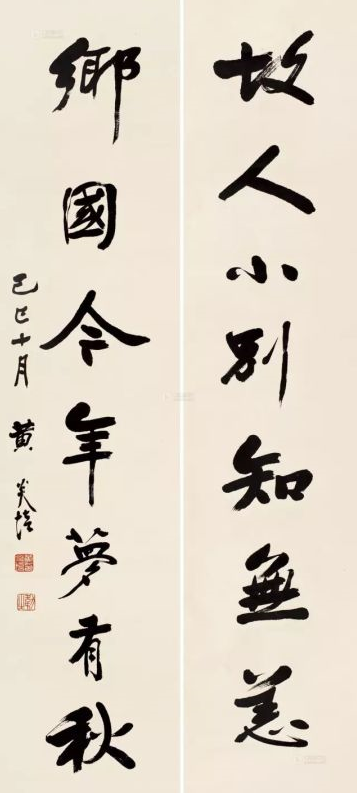 故人小別知無恙
鄉國今年夢有秋
己巳十月 黃炎培